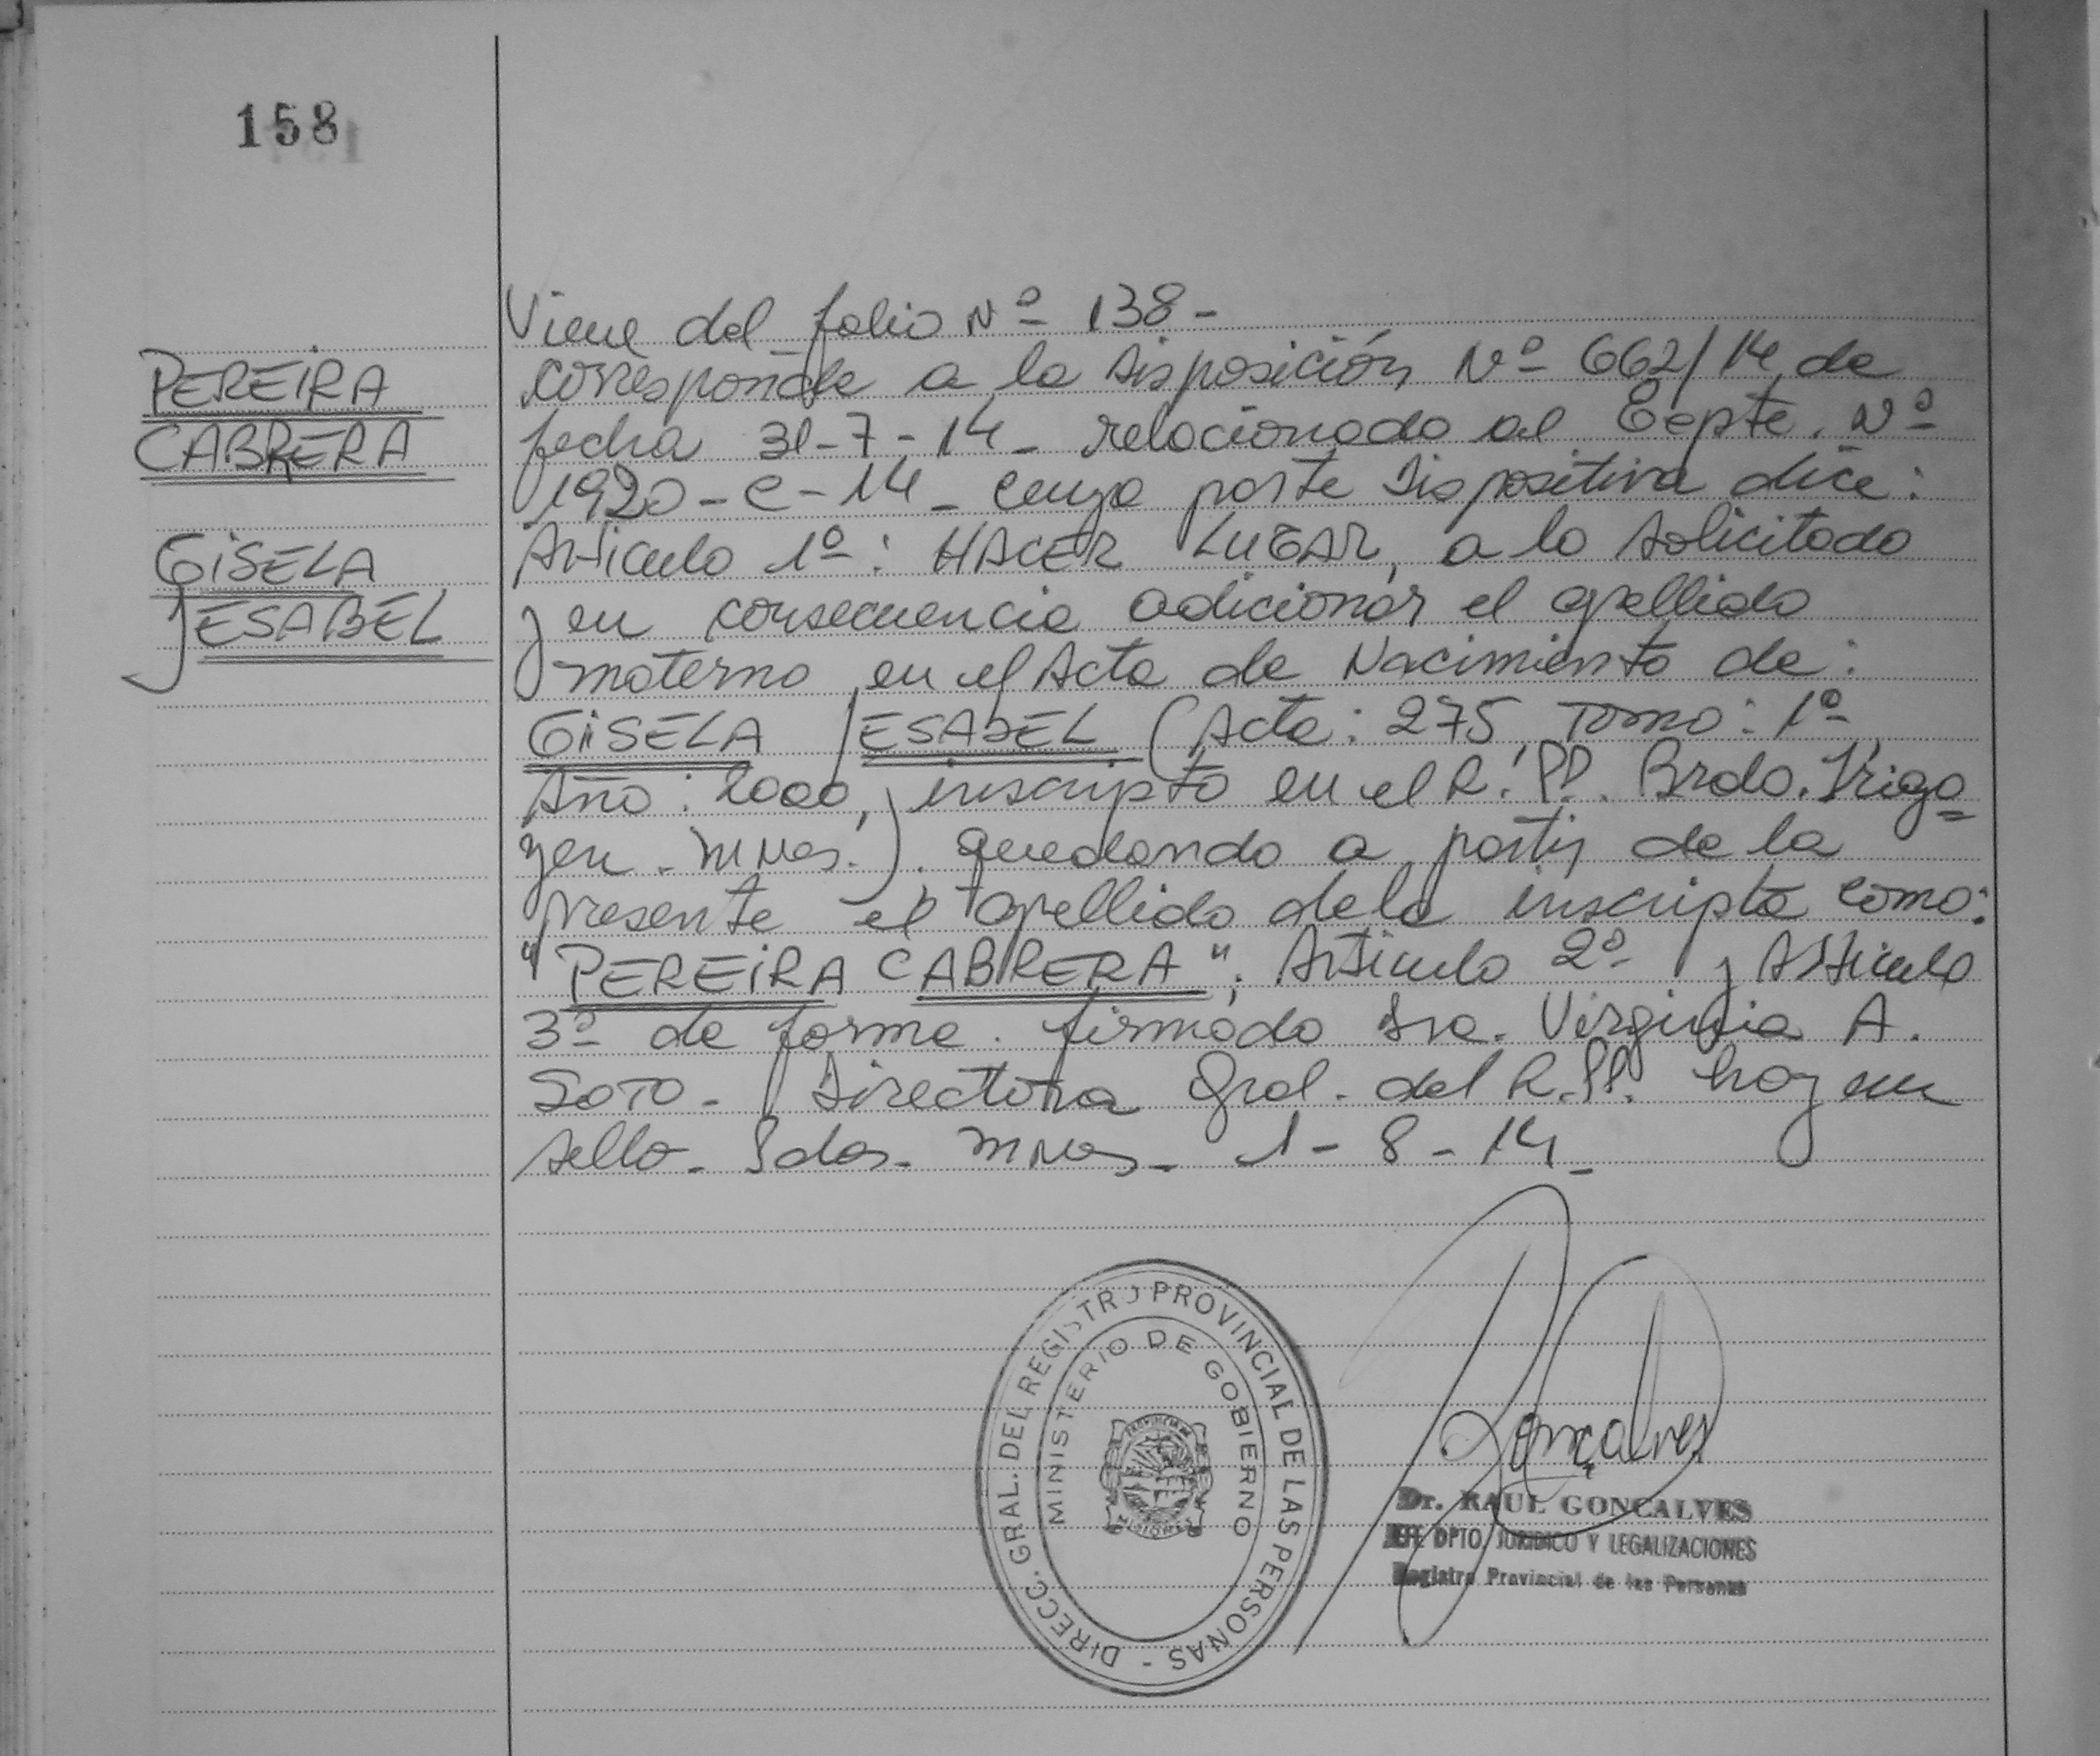 158
PEREIRA
CABRERA
GISELA
JESABEL
Viene del folio Nº 138-
corresponde a la disposición Nº 662/14 de
fecha 31-7-14- relacionado al Eepte. Nº
1920-C-14- cuya parte dispositiva dice:
Artículo 1º: HACER LUGAR, a lo solicitado
y en consecuencia adicionar el apellido
materno en el Acta de Nacimiento de:
GISELA JESABEL (Acta: 275, Tomo: 1º
Año: 2000, inscripto en el R.PP. Brdo. Irigo
yen - Mnes.). quedando a partir de la
presente el apellido de la inscripta como:
"PEREIRA CABRERA"; Artículo 2º y Artículo
3º de forma. firmado Sra. Virginia A.
SOTO - Directora Gral. del R.PP. hoy un
sello - Pdas - Mnes - 1-8-14-
DIRECC. GRAL. DEL REGISTRO PROVINCIAL DE LAS PERSONAS -
MINISTERIO DE GOBIERNO
PROVINCIA DE
MISIONES
Gonçalves
Dr. RAUL GONCALVES
JEFE DPTO. JURIDICO Y LEGALIZACIONES
Registro Provincial de las Personas